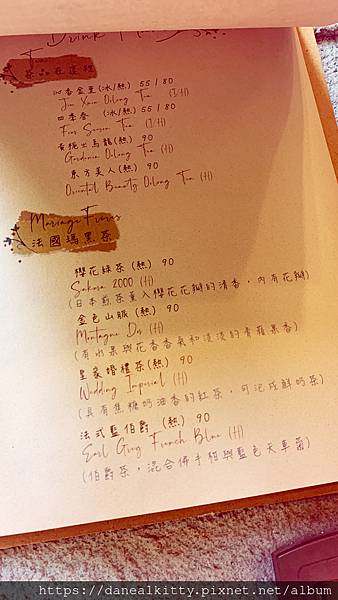 Drink
Tea
茶品在這裡
四香金萱(冰/熱) 55 / 80
Jin Xuan Oolong Tea (I/H)
四季春 (冰/熱) 55 / 80
Four Season Tea (I/H)
黃梔山烏龍(熱) 90
Gardenia Oolong Tea (H)
東方美人(熱) 90
Oriental Beauty Oolong Tea (H)
Mariage Frères
法國瑪黑茶
櫻花綠茶 (熱) 90
Sakura 2000 (H)
(日本煎茶重入櫻花花瓣的清香，內有花瓣)
金色山脈 (熱) 90
Montagne Dor (H)
(有水果與花香香氣和淡淡的青蘋果香)
皇家婚禮茶(熱) 90
Wedding Imperial (H)
(具有焦糖奶油香的紅茶，可泡成鮮奶茶)
法式藍伯爵 (熱) 90
Earl Grey French Blue (H)
(伯爵茶，混合佛手柑與藍色矢車菊)
https://danealkitty.pixnet.net/album